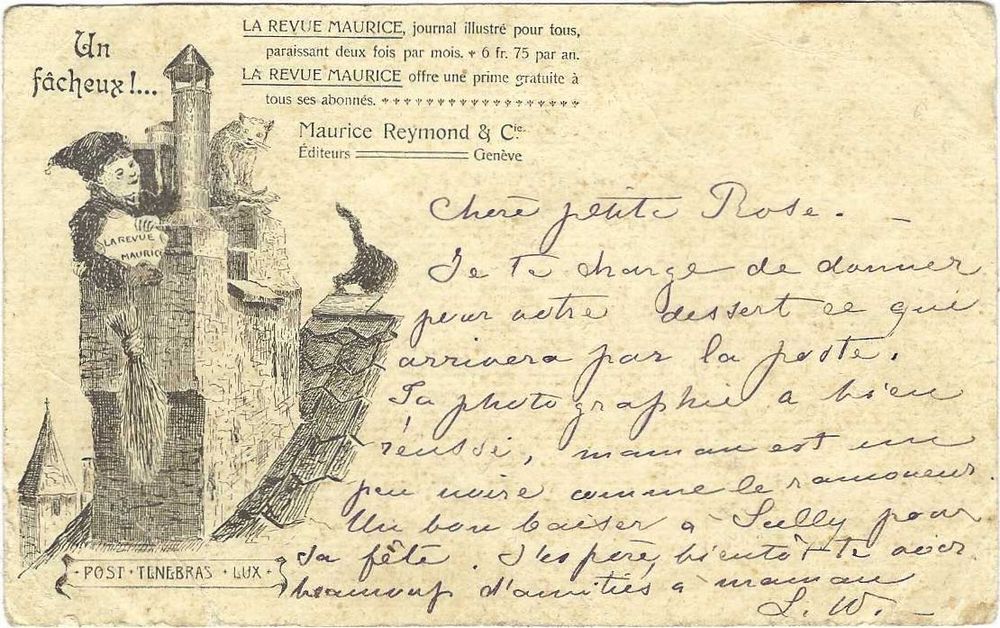 Un
fâcheux!...
LA REVUE MAURICE, journal illustré pour tous,
paraissant deux fois par mois. 6 fr. 75 par an.
LA REVUE MAURICE offre une prime gratuite à
tous ses abonnés.
Maurice Reymond & Cie.
Éditeurs Genève
LA REVUE
MAURICE
Chère petite Rose. —
Je te charge de donner
pour votre dessert ce qui
arrivera par la poste.
Ta photographie a bien
réussi, maman est un
peu noire comme le ramoneur.
Un bon baiser à Sully pour
sa fête. J'espère bientôt te voir
beaucoup d'amitiés à maman
L. W. —
POST · TENEBRAS · LUX